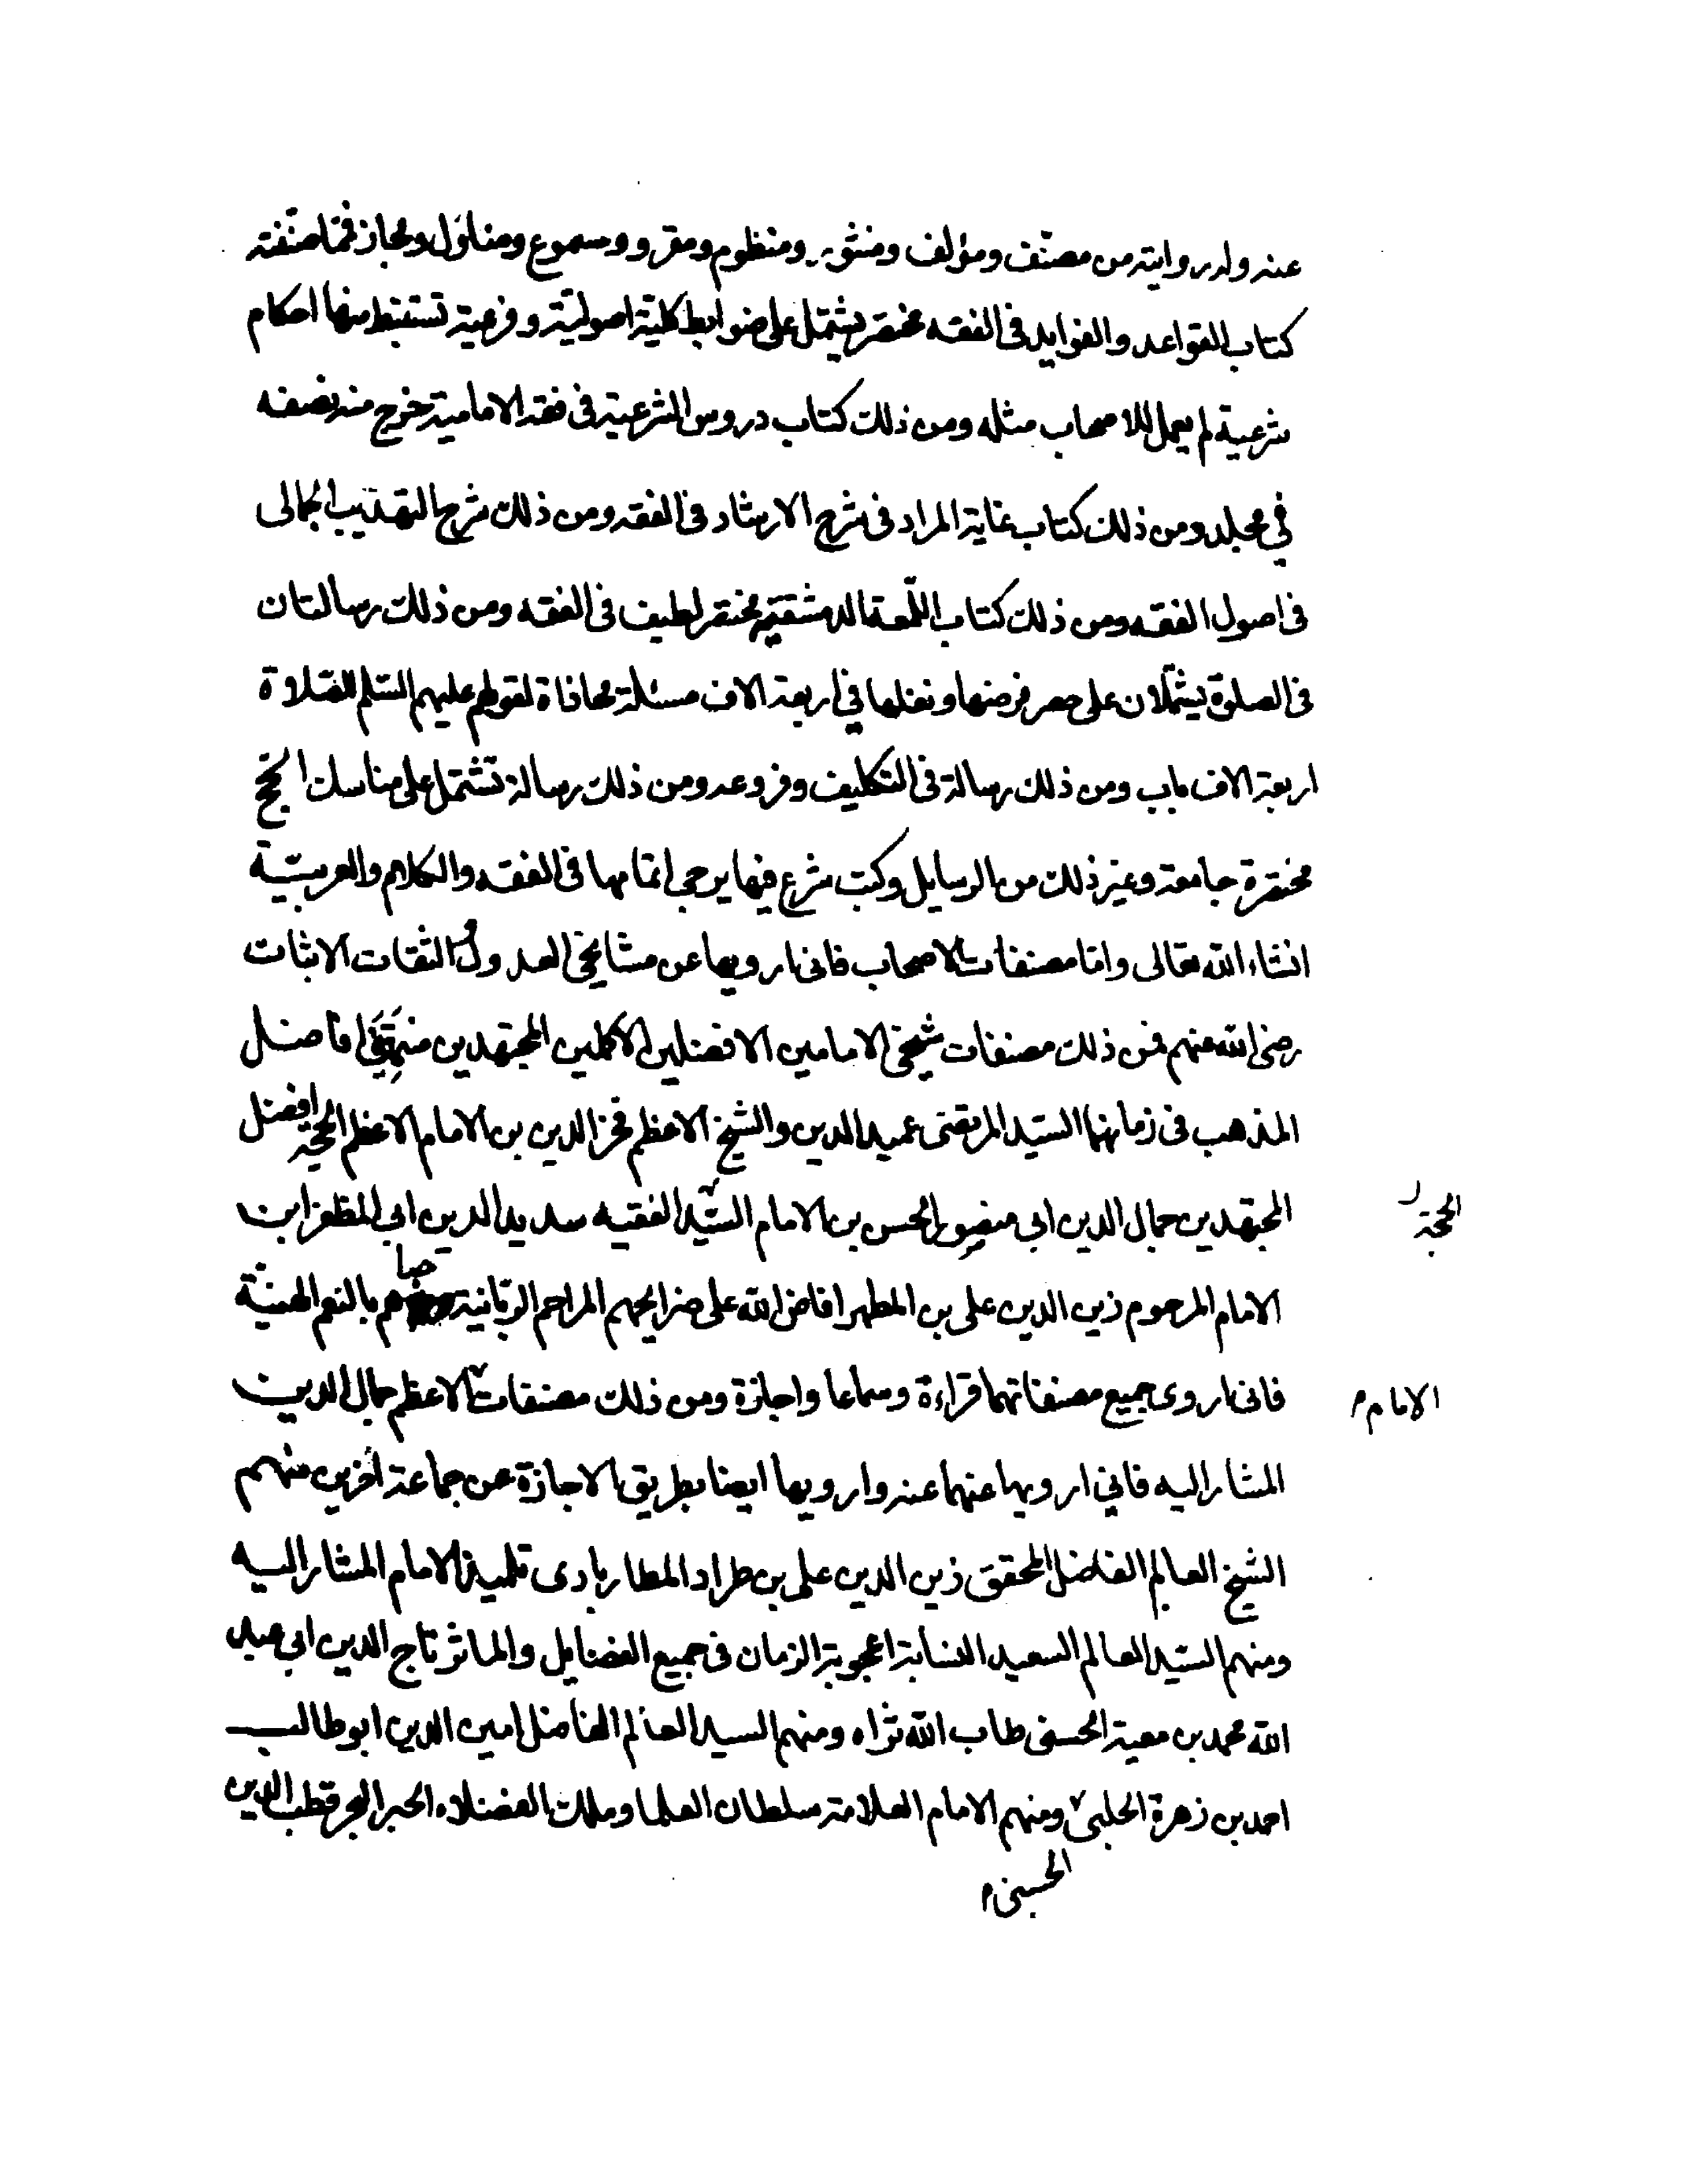 عنه ولى روايته من مصنّف ومؤلف ومنثور ومنظوم ومقرو ومسموع ومناول ومجاز فمما صنّفته
كتاب القواعد والفوايد فى الفقه مختصر يشتمل على ضوابط كلية اصولية وفرعية تستنبط منها احكام
شرعية لم يعمل للاصحاب مثله ومن ذلك كتاب دروس الشرعية فى فقه الامامية خرج منه نصفه
في مجلد ومن ذلك كتاب غاية المراد فى شرح الارشاد فى الفقه ومن ذلك شرح التهذيب الجمالى
فى اصول الفقه ومن ذلك كتاب اللّمعة الدمشقية مختصر لطيف فى الفقه ومن ذلك رسالتان
فى الصلوة يشتملان على حصر فرضها ونفلها في اربعة الاف مسئلة محاذاة لقولهم عليهم السّلم للصّلاة
اربعة الاف باب ومن ذلك رسالة فى التكليف وفروعه ومن ذلك رسالة تشتمل على مناسك الحج
مختصرة جامعة وغير ذلك من الرسايل وكتب شرع فيها يرجى اتمامها فى الفقه والكلام والعربيّة
انشاء الله تعالى وامّا مصنفات الاصحاب فانى ارويها عن مشايخى العدول الثقات الاثبات
رضى الله عنهم فمن ذلك مصنفات شيخى الامامين الافضلين الاكملين المجتهدين منتهى افاضل
المذهب فى زمانهما السّيد المرتضى عميد الدين والشيخ الاعظم فخر الدين بن الامام الاعظم الحجة افضل
المجتهدين جمال الدين ابي منصور الحسن بن الامام السّيّد الفقيه سديد الدين ابي المظفر ابن
الحجة
الامام المرحوم زين الدين على بن المطهر افاض الله على ضرايحهم المراحم الربّانية وحباهم بالنعم الهنيئة
فانى اروى جميع مصنفاتهما قراءة وسماعا واجازة ومن ذلك مصنفات الاعظم جمال الدين
الامام م
المشار اليه فاني ارويها عنهما عنه وارويها ايضا بطريق الاجازة عن جماعة اخرين منهم
الشيخ العالم الفاضل المحقق زين الدين على بن طراد المطاربادى تلميذ الامام المشار اليه
ومنهم السّيد العالم السعيد النسّابة اعجوبة الزمان فى جميع الفضايل والماثر تاج الدين ابي عبد
الله محمد بن معية الحسنى طاب الله ثراه ومنهم السيد العالم الفاضل امين الدين ابو طالب
احمد بن زهرة الحلبى ومنهم الامام العلامة سلطان العلما وملك الفضلاء الحبر البحر قطب الدين
الحسينى م